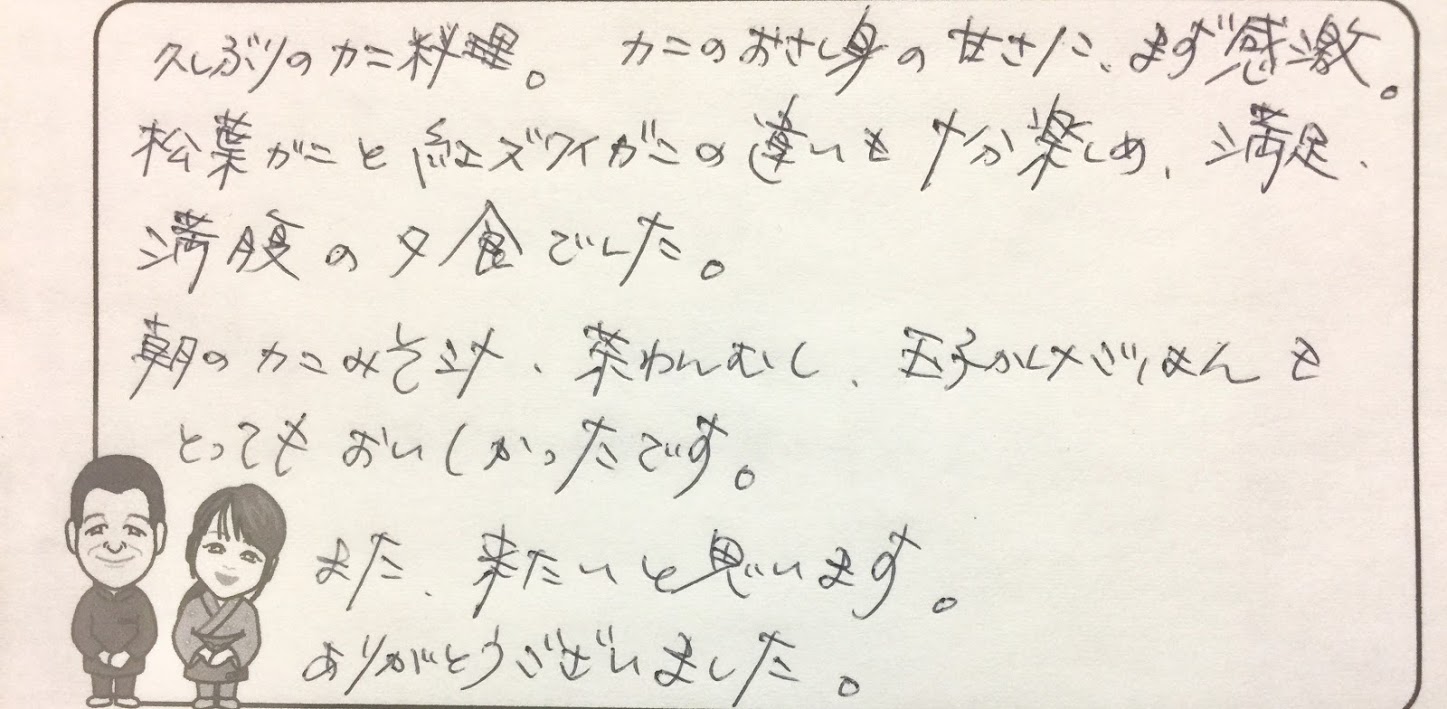 久しぶりのカニ料理。 カニのおさし身の甘さに、まず感激。
松葉がニと紅ズワイガニの違いも十分楽しめ、満足、
満腹の夕食でした。
朝のカニみそ汁、茶わんむし、玉子かけごはんも
とってもおいしかったです。
また、来たいと思います。
ありがとうございました。